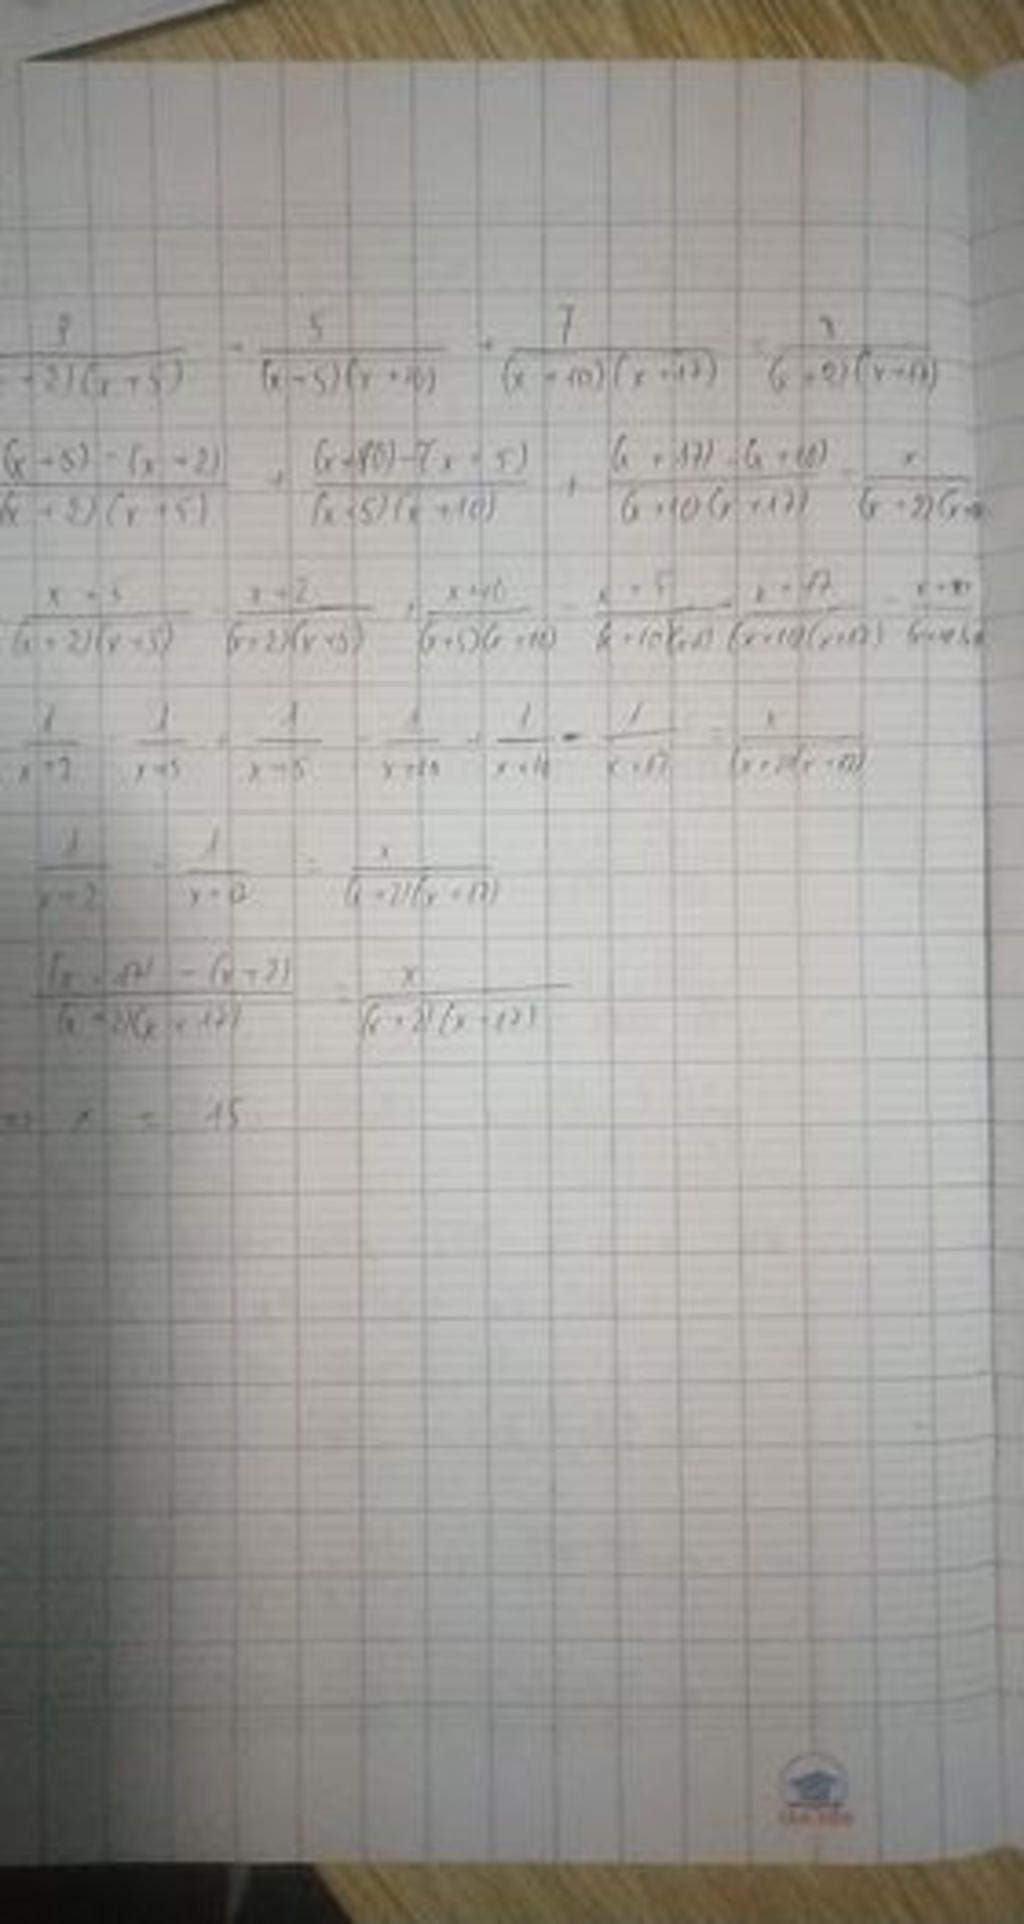 3/(+2)(x+5) + 5/(x+5)(x+10) + 7/(x+10)(x+17) = x/(x+2)(x+17)
(x+5)-(x+2)/(x+2)(x+5) + (x+10)-(x+5)/(x+5)(x+10) + (x+17)-(x+10)/(x+10)(x+17) = x/(x+2)(x+
x+5/(x+2)(x+5) - x+2/(x+2)(x+5) + x+10/(x+5)(x+10) - x+5/(x+10)(x+5) + x+17/(x+10)(x+17) -
1/x+2 - 1/x+5 + 1/x+5 - 1/x+10 + 1/x+10 - 1/x+17 = x/(x+2)(x+17)
1/x+2 - 1/x+17 = x/(x+2)(x+17)
(x+17)-(x+2)/(x+2)(x+17) = x/(x+2)(x+17)
=> x = 15